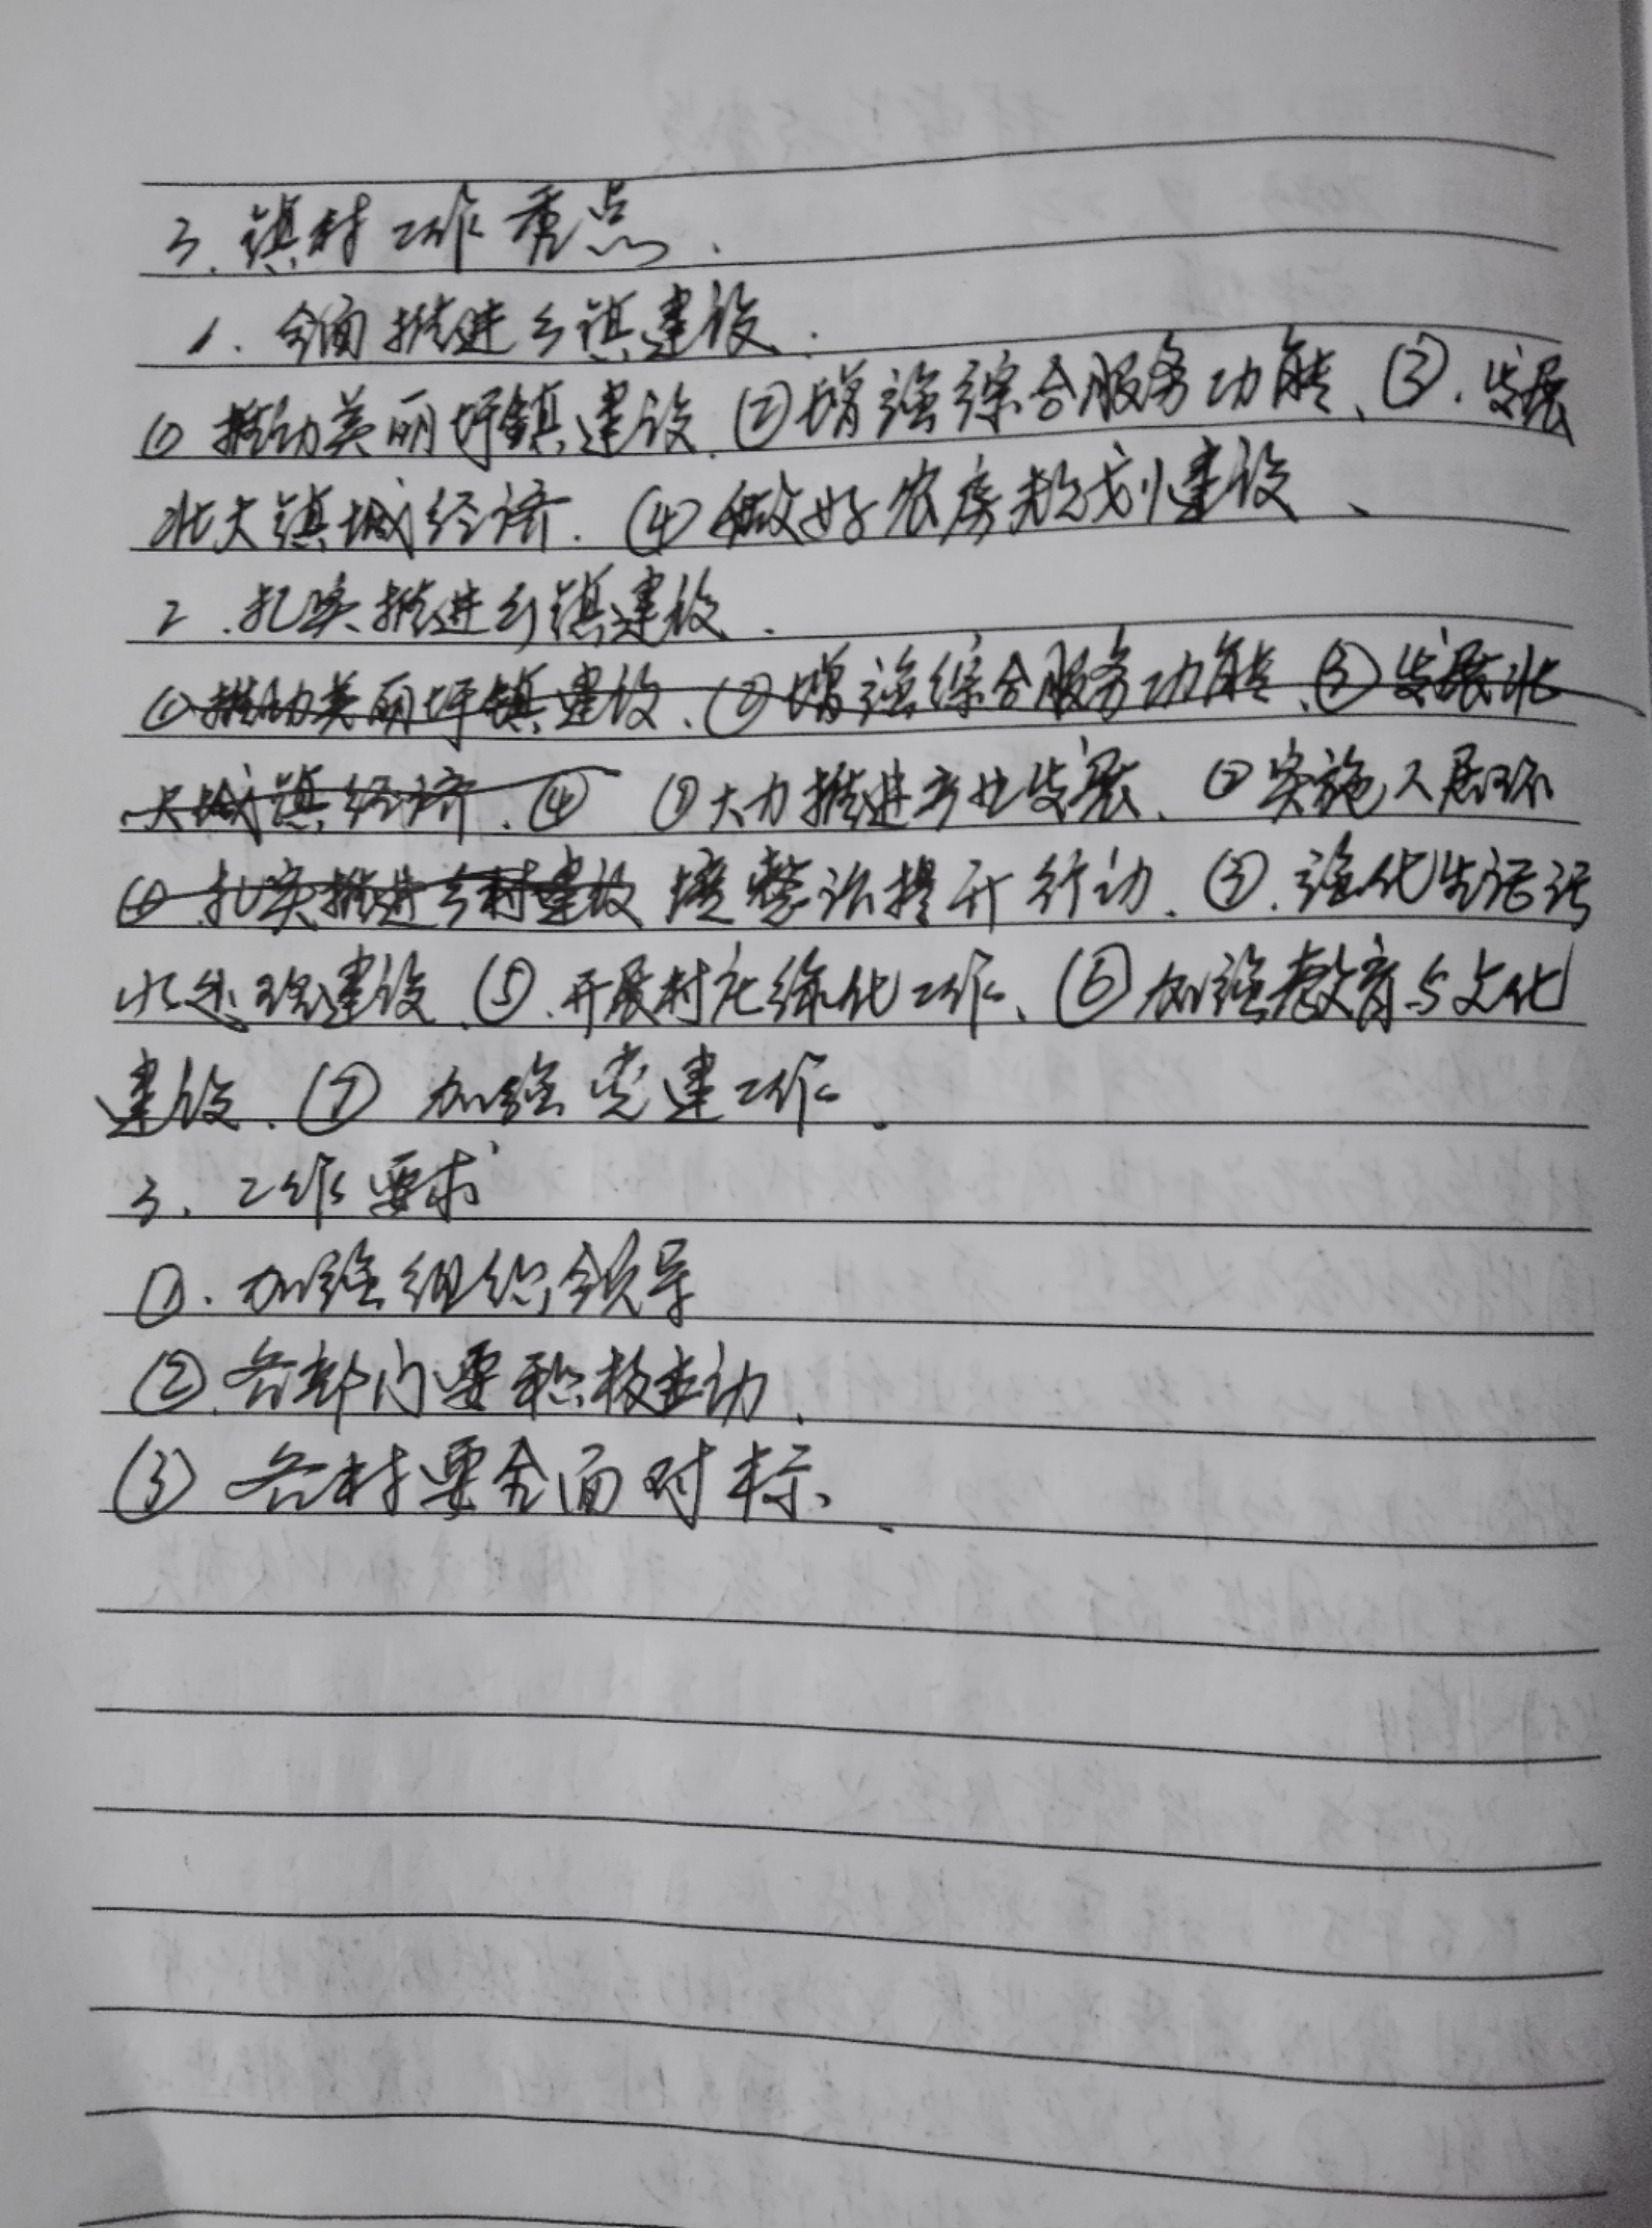 3. 镇村工作重点.
1. 全面推进乡镇建设:
① 推动美丽圩镇建设.②增强综合服务功能、③.发展
壮大镇域经济.④做好农房规划建设、
2.扎实推进乡镇建设.
①推动美丽圩镇建设、②增强综合服务功能、③发展壮
大城镇经济.④ ①大力推进产业发展、②实施人居环
④扎实推进乡村建设 境整治提升行动、③.强化生活污
水处理建设、⑤.开展村庄绿化工作、⑥加强教育与文化
建设.⑦ 加强党建工作.
3. 工作要求
①.加强组织领导
②.各部门要积极主动.
③ 各村要全面对标、